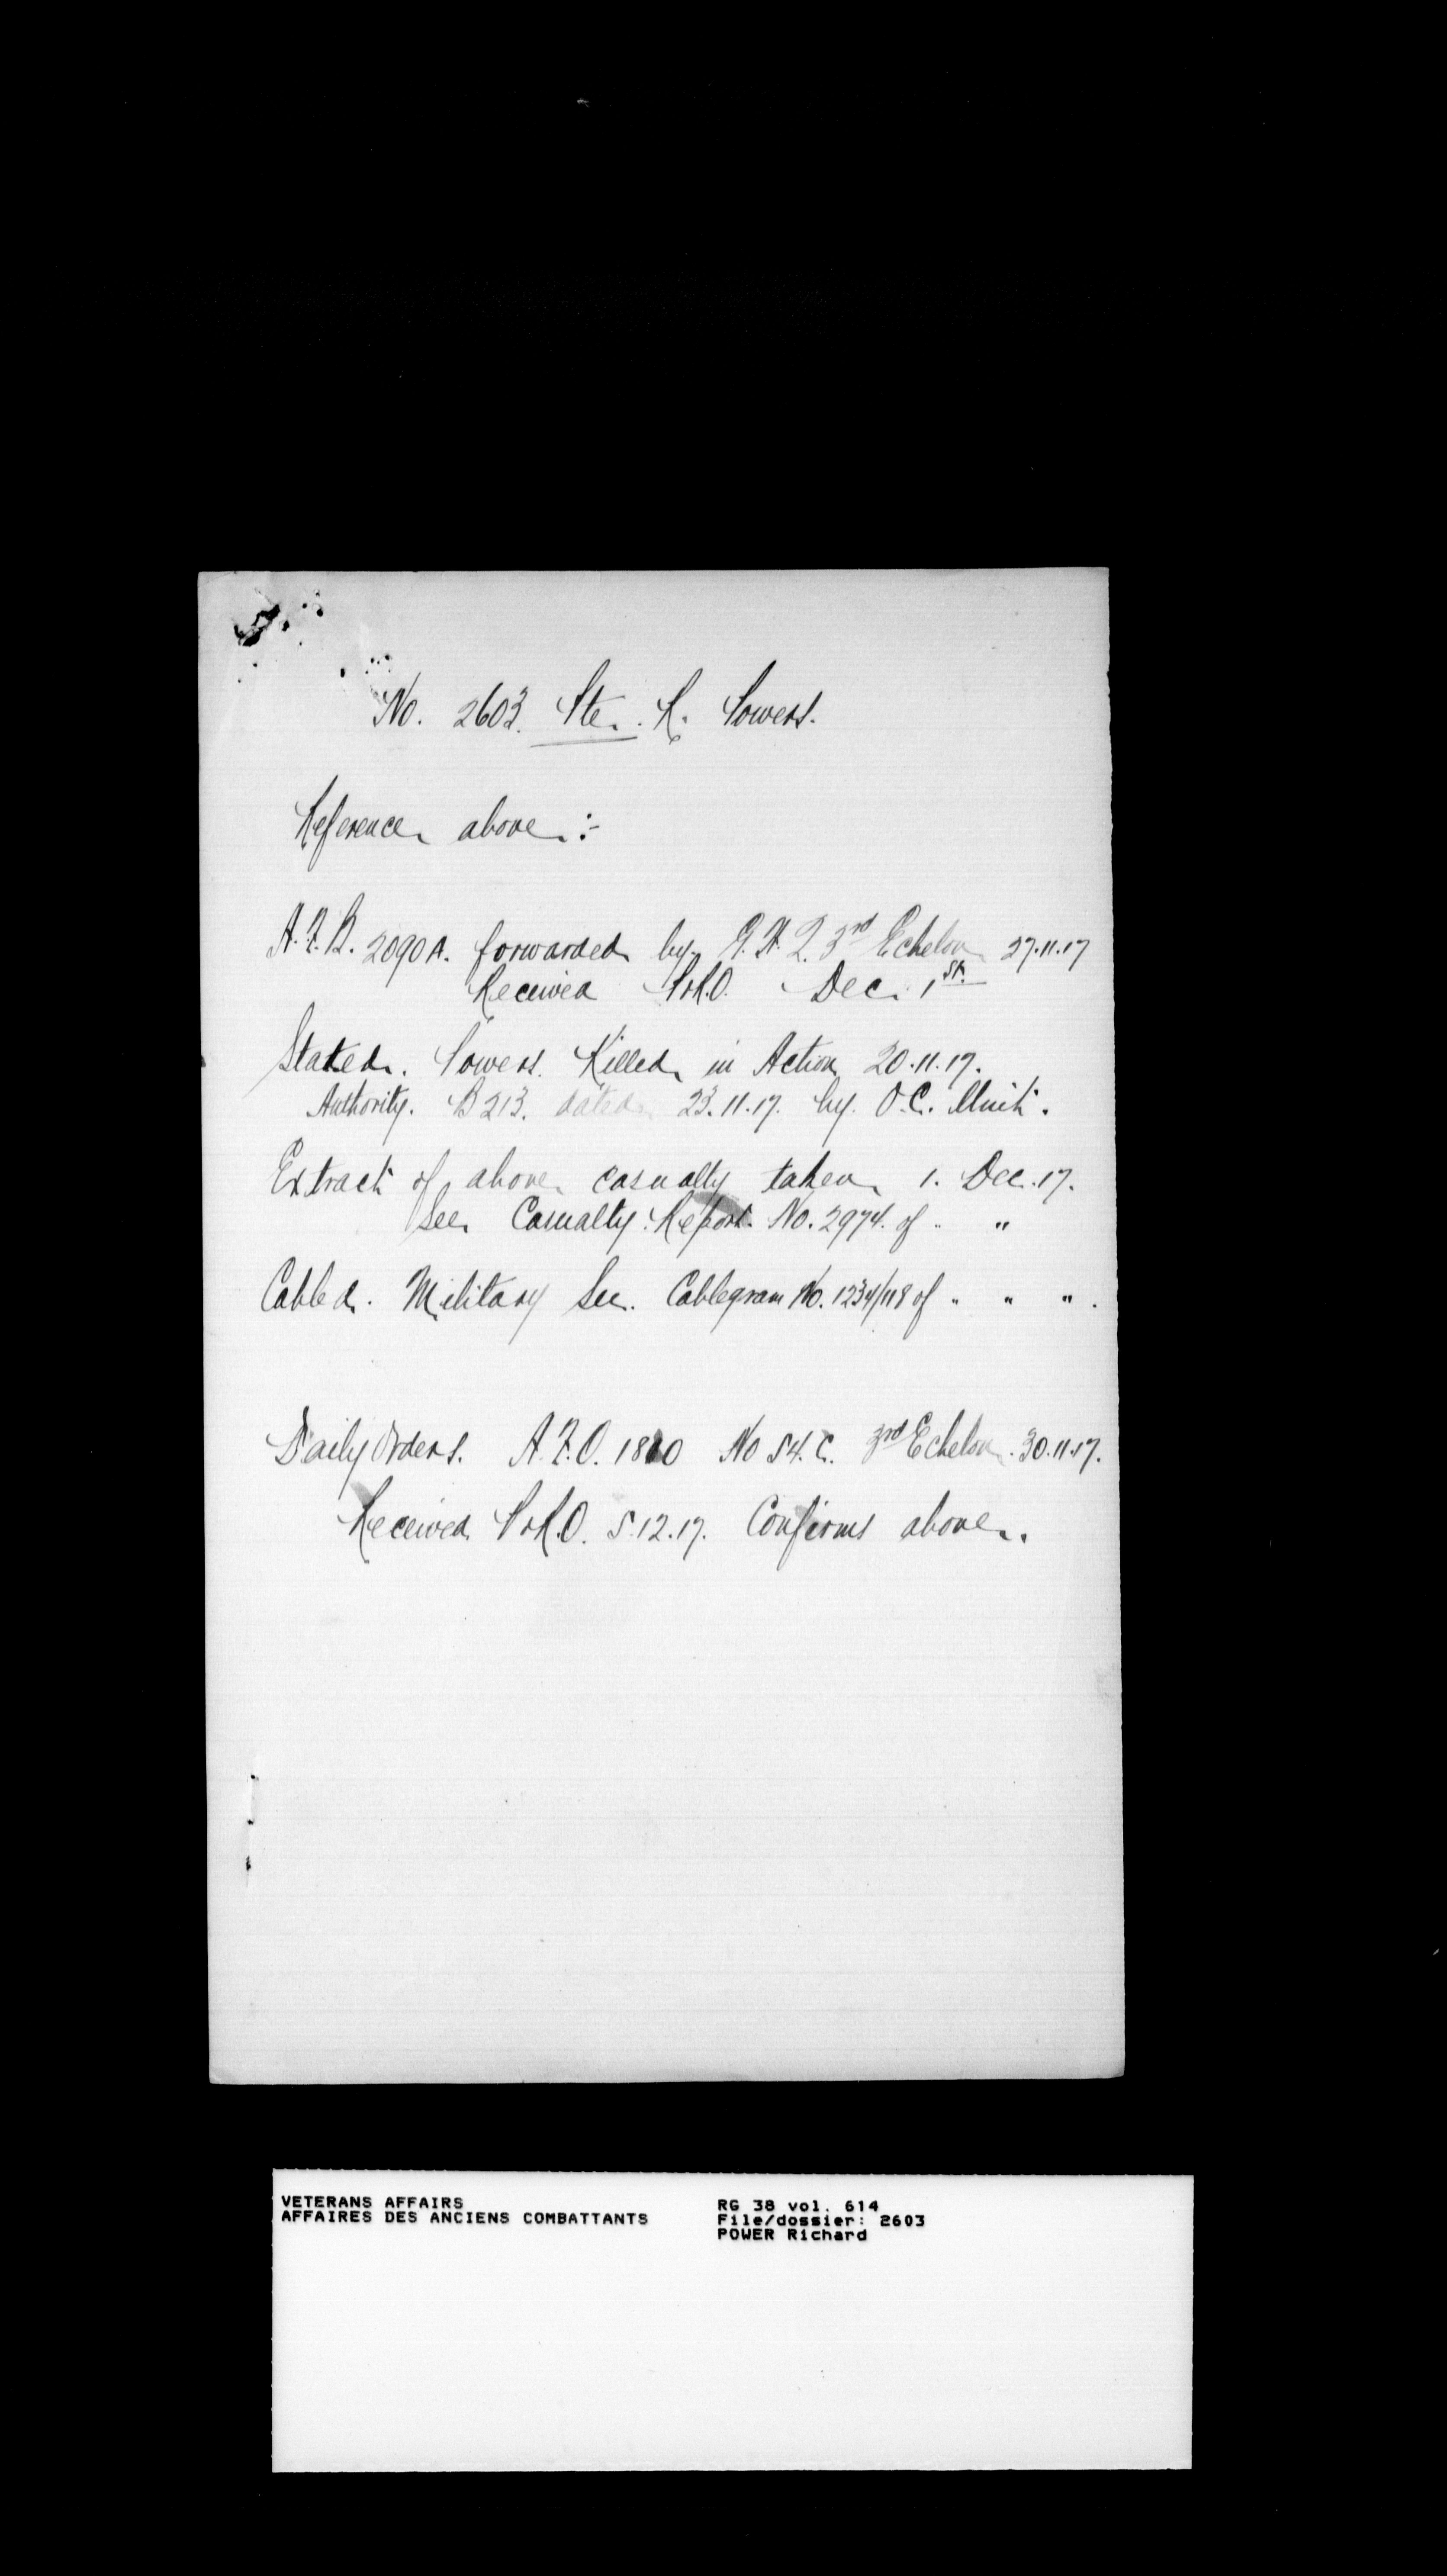 No. 2603. Pte. R. Powers.
Reference above :-
A.F.B. 2090A. forwarded by G.H.Q. 3rd Echelon 27.11.17
Received P&R.O. Dec. 1st.
Stated. Powers. Killed in Action 20.11.17.
Authority. B213. dated 23.11.17. by. O.C. Unit.
Extract of above casualty taken 1. Dec. 17.
See Casualty Report No. 2974. of " "
Cabled. Military Sec. Cablegram No. 1234/118 of " " ".
Daily Orders. A.F.O. 1810 No 54. C. 3rd Echelon. 30.11.17.
Received P&R.O. 5.12.17. Confirms above.
VETERANS AFFAIRS
AFFAIRES DES ANCIENS COMBATTANTS
RG 38 vol. 614
File/dossier: 2603
POWER Richard